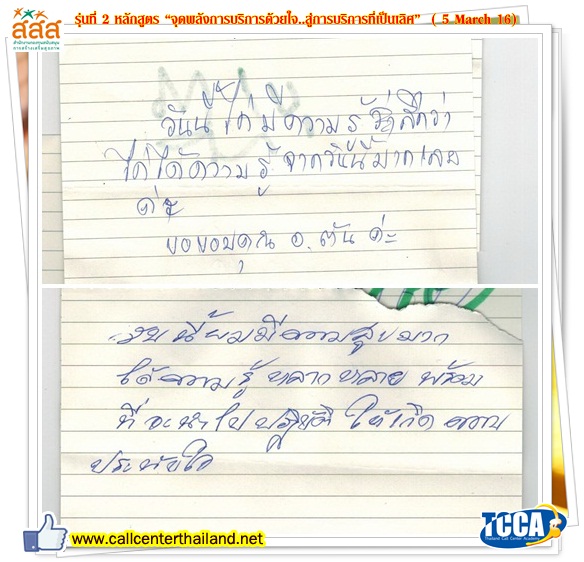 สสส
สำนักงานกองทุนสนับสนุน
การสร้างเสริมสุขภาพ
รุ่นที่ 2 หลักสูตร “จุดพลังการบริการด้วยใจ..สู่การบริการที่เป็นเลิศ” ( 5 March 16)
วันนี้ ได้มีความรู้
ได้ได้ความรู้ จากวันนี้มากเลย
ค่ะ
ขอขอบคุณ อ.ตัน ค่ะ
วันนี้ผมมีความสุขมาก
ได้ความรู้ หลากหลาย พร้อม
ที่จะนำไปปฏิบัติ ให้เกิดความ
ประทับใจ
www.callcenterthailand.net
TCCA
Thailand Call Center Academy